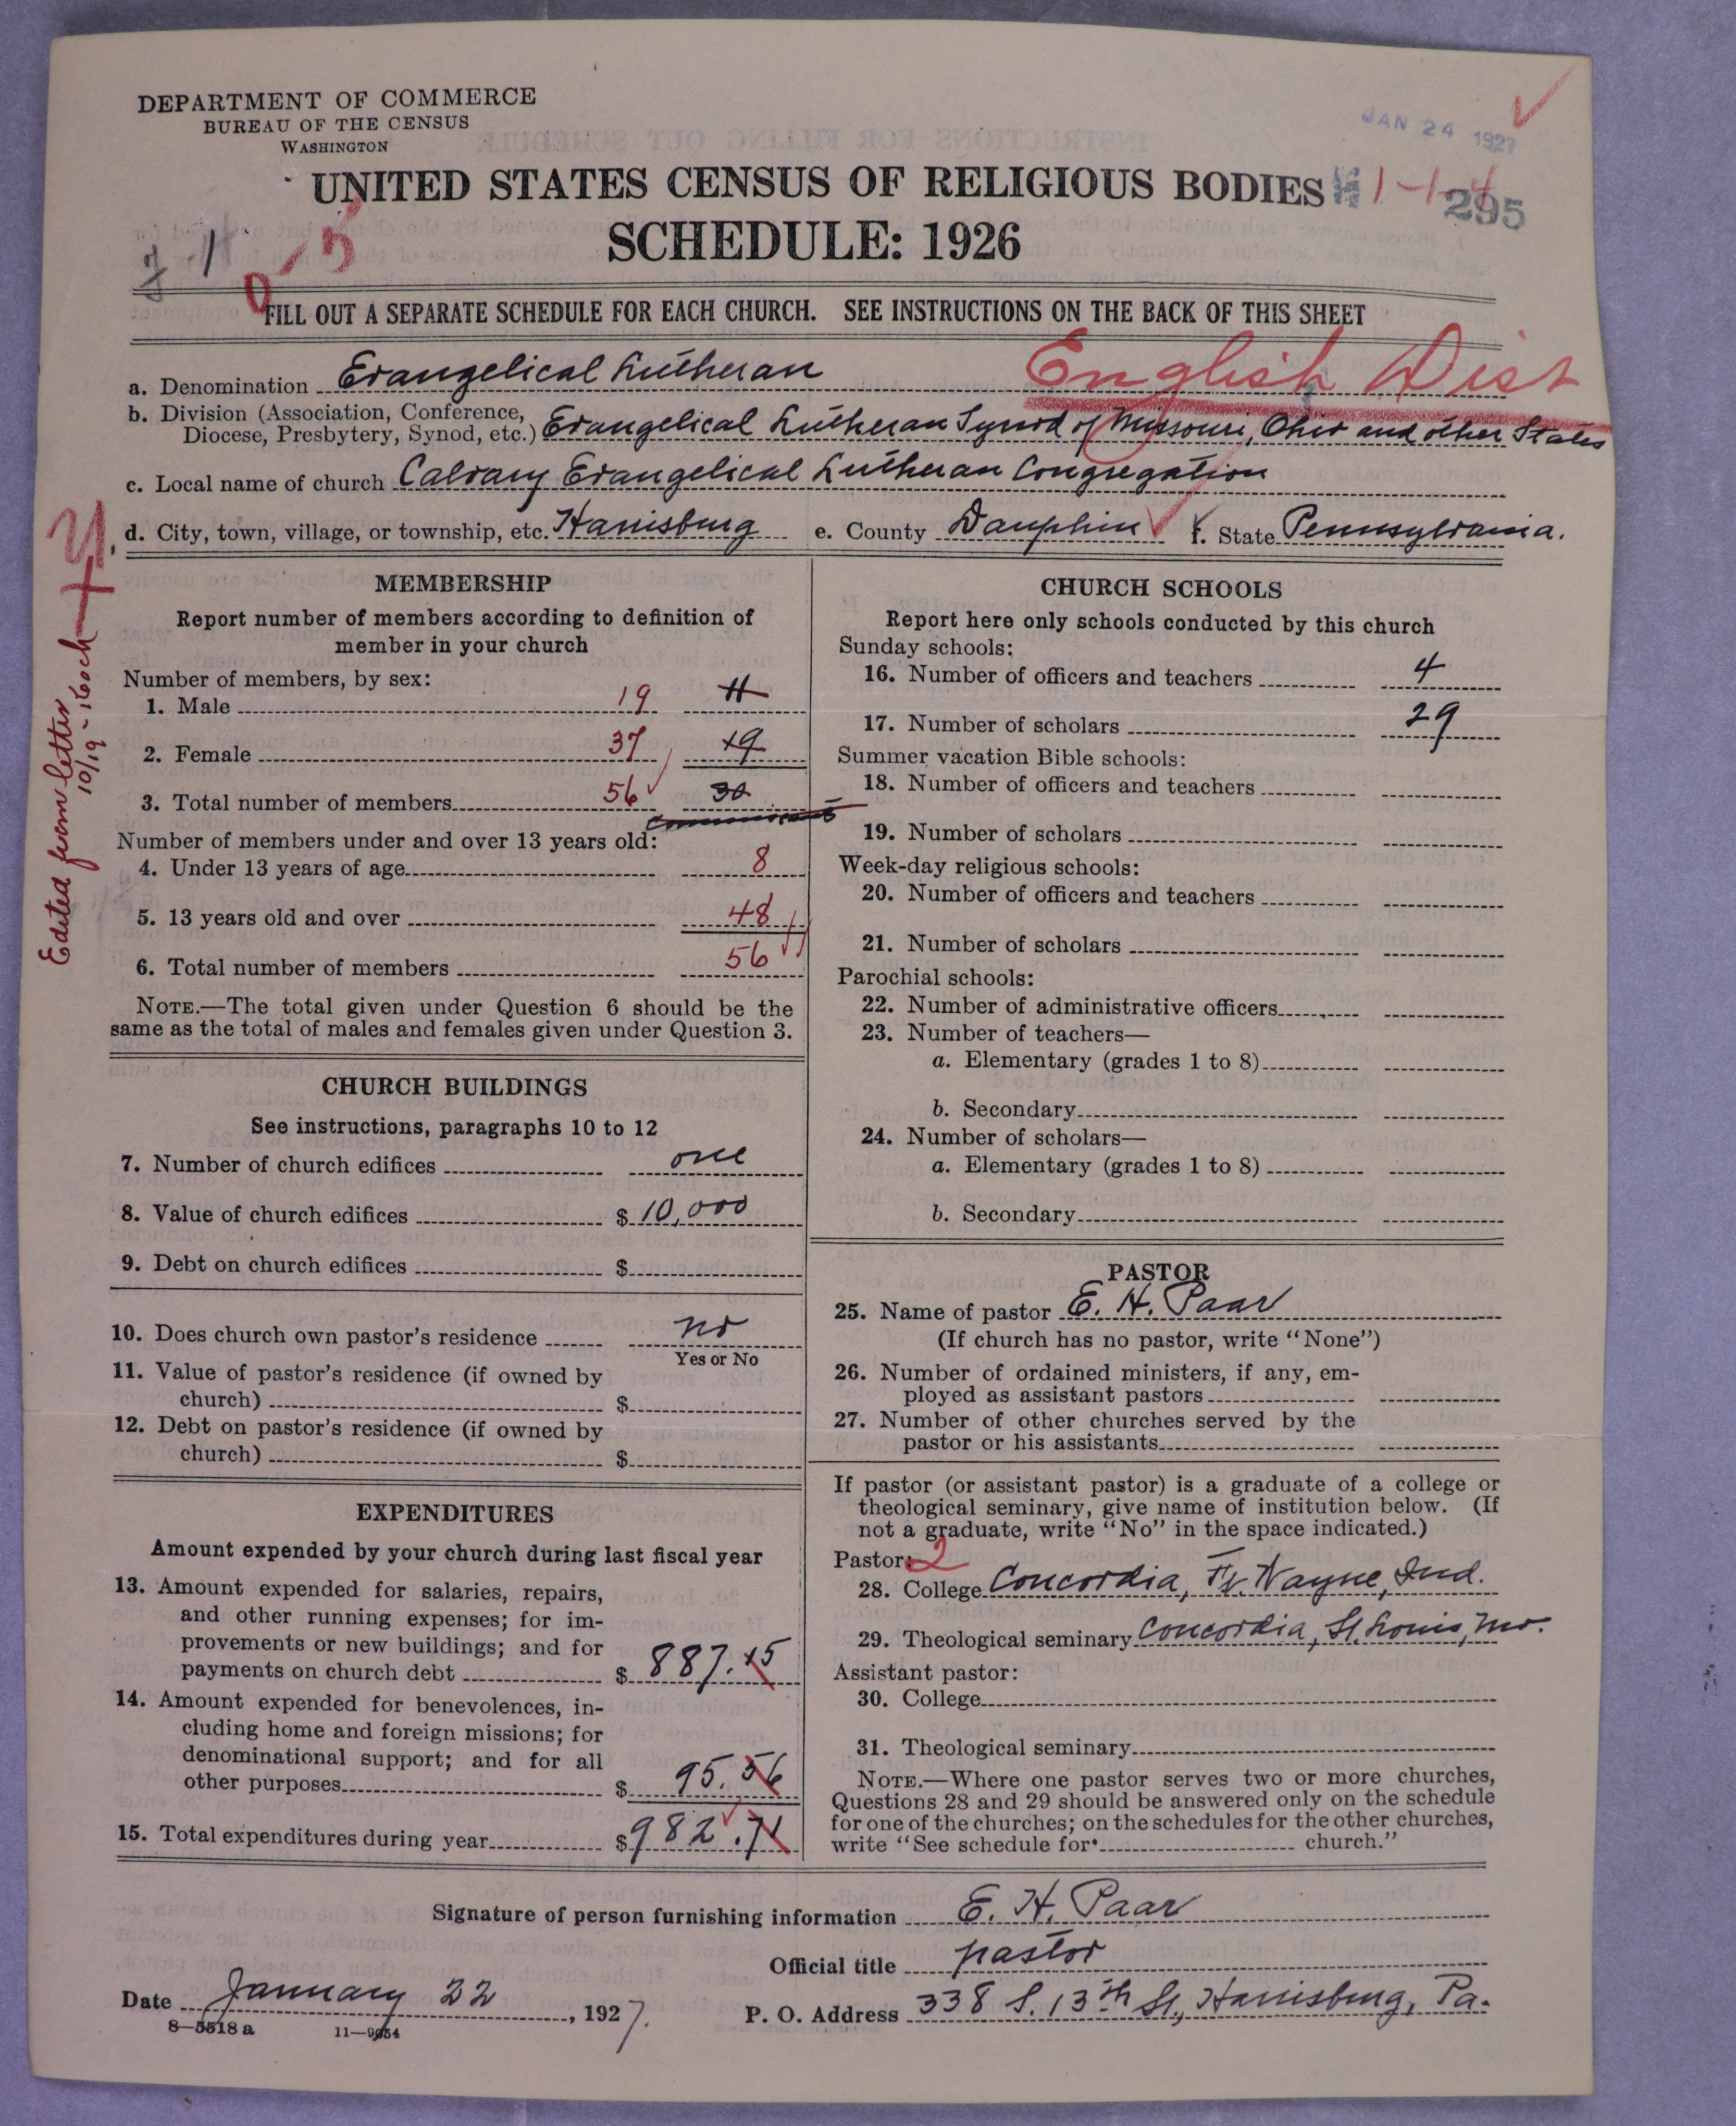 DEPARTMENT OF COMMERCE
BUREAU OF THE CENSUS
WASHINGTON
JAN 24 1927
UNITED STATES CENSUS OF RELIGIOUS BODIES
1-1-4
295
SCHEDULE: 1926
0-5
FILL OUT A SEPARATE SCHEDULE FOR EACH CHURCH. SEE INSTRUCTIONS ON THE BACK OF THIS SHEET
English Dist
a. Denomination Evangelical Lutheran
b. Division (Association, Conference,
Diocese, Presbytery, Synod, etc.) Evangelical Lutheran Synod of Missouri, Ohio and other States
c. Local name of church Calvary Evangelical Lutheran Congregation
d. City, town, village, or township, etc. Harrisburg e. County Dauphin f. State Pennsylvania.
Edited from letter
10/19 - Koch
MEMBERSHIP
Report number of members according to definition of
member in your church
Number of members, by sex:
1. Male 19 11
2. Female 37 19
3. Total number of members 56 30
communicants
Number of members under and over 13 years old:
4. Under 13 years of age 8
5. 13 years old and over 48
6. Total number of members 56
NOTE.—The total given under Question 6 should be the
same as the total of males and females given under Question 3.
CHURCH BUILDINGS
See instructions, paragraphs 10 to 12
7. Number of church edifices one
8. Value of church edifices $ 10,000
9. Debt on church edifices $
10. Does church own pastor's residence no
Yes or No
11. Value of pastor's residence (if owned by
church) $
12. Debt on pastor's residence (if owned by
church) $
EXPENDITURES
Amount expended by your church during last fiscal year
13. Amount expended for salaries, repairs,
and other running expenses; for im-
provements or new buildings; and for
payments on church debt $ 887.15
14. Amount expended for benevolences, in-
cluding home and foreign missions; for
denominational support; and for all
other purposes $ 95.56
15. Total expenditures during year $ 982.71
CHURCH SCHOOLS
Report here only schools conducted by this church
Sunday schools:
16. Number of officers and teachers 4
17. Number of scholars 29
Summer vacation Bible schools:
18. Number of officers and teachers
19. Number of scholars
Week-day religious schools:
20. Number of officers and teachers
21. Number of scholars
Parochial schools:
22. Number of administrative officers
23. Number of teachers—
a. Elementary (grades 1 to 8)
b. Secondary
24. Number of scholars—
a. Elementary (grades 1 to 8)
b. Secondary
PASTOR
25. Name of pastor E. H. Paar
(If church has no pastor, write "None")
26. Number of ordained ministers, if any, em-
ployed as assistant pastors
27. Number of other churches served by the
pastor or his assistants
If pastor (or assistant pastor) is a graduate of a college or
theological seminary, give name of institution below. (If
not a graduate, write "No" in the space indicated.)
Pastor: 2
28. College Concordia, Ft. Wayne, Ind.
29. Theological seminary Concordia, St. Louis, Mo.
Assistant pastor:
30. College
31. Theological seminary
NOTE.—Where one pastor serves two or more churches,
Questions 28 and 29 should be answered only on the schedule
for one of the churches; on the schedules for the other churches,
write "See schedule for church."
Signature of person furnishing information E. H. Paar
Official title pastor
Date January 22, 1927. P. O. Address 338 S. 13th St., Harrisburg, Pa.
8—5518 a 11—9054